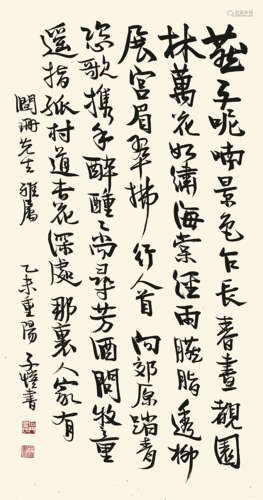 燕子呢喃景色乍長春晝覩園
林萬花如繡海棠經雨臙脂透柳
展宮眉翠拂行人首 向郊原踏青
恣歌携手醉醺々尚尋芳酒問牧童
遥指孤村道杏花深處那裏人家有
珊先生雅屬 乙未重陽 子愷書